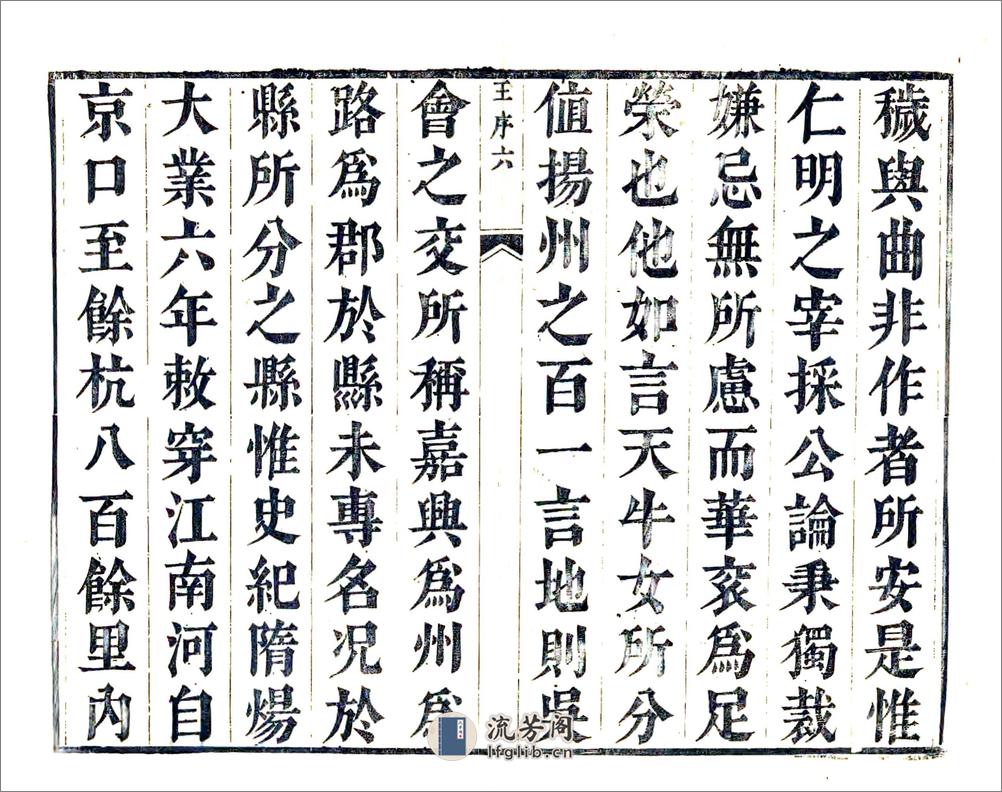 穢與曲非作者所安是惟
仁明之宰採公論秉獨裁
嫌忌無所慮而華衮爲足
榮也他如言天牛女所分
値揚州之百一言地則吳
王序六
會之交所稱嘉興爲州爲
路爲郡於縣未專名况於
縣所分之縣惟史紀隋煬
大業六年敕穿江南河自
京口至餘杭八百餘里內
流芳阁
lfglib.cn